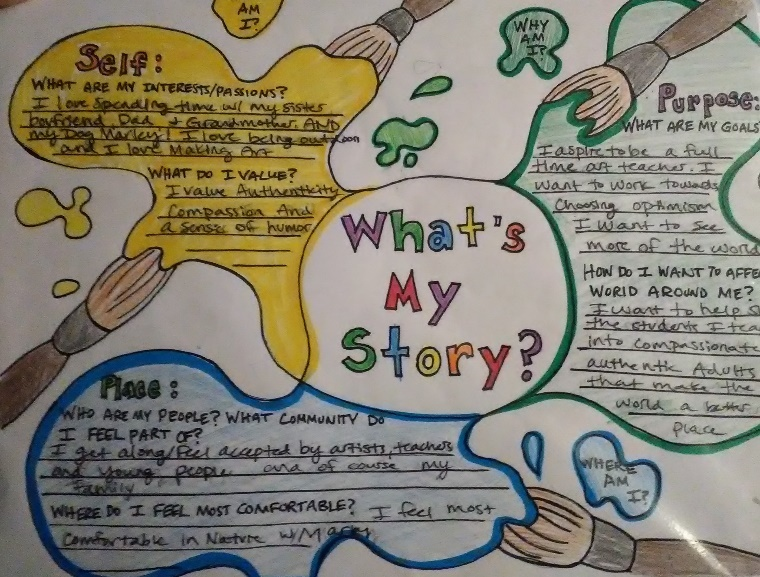 AM
I?
Self:
WHAT ARE MY INTERESTS/PASSIONS?
I love spending time w/ my sister
boyfriend, Dad + Grandmother. AND
my Dog Marley! I love being outdoors
and I love Making Art
WHAT DO I VALUE?
I value Authenticity
Compassion And
a sense of humor
What's
My
Story?
WHY
AM
I?
Purpose:
WHAT ARE MY GOALS
I aspire to be a full
time art teacher. I
want to work towards
Choosing optimism
I want to see
more of the world
HOW DO I WANT TO AFFE
WORLD AROUND ME?
I want to help s
the students I tea
into compassionate
authentic Adults
that make the
world a better
place
Place:
WHO ARE MY PEOPLE? WHAT COMMUNITY DO
I FEEL PART OF?
I get along/feel accepted by artists, teachers
and young people and of course my
family
WHERE DO I FEEL MOST COMFORTABLE? I feel most
Comfortable in Nature w/
WHERE
AM
I?